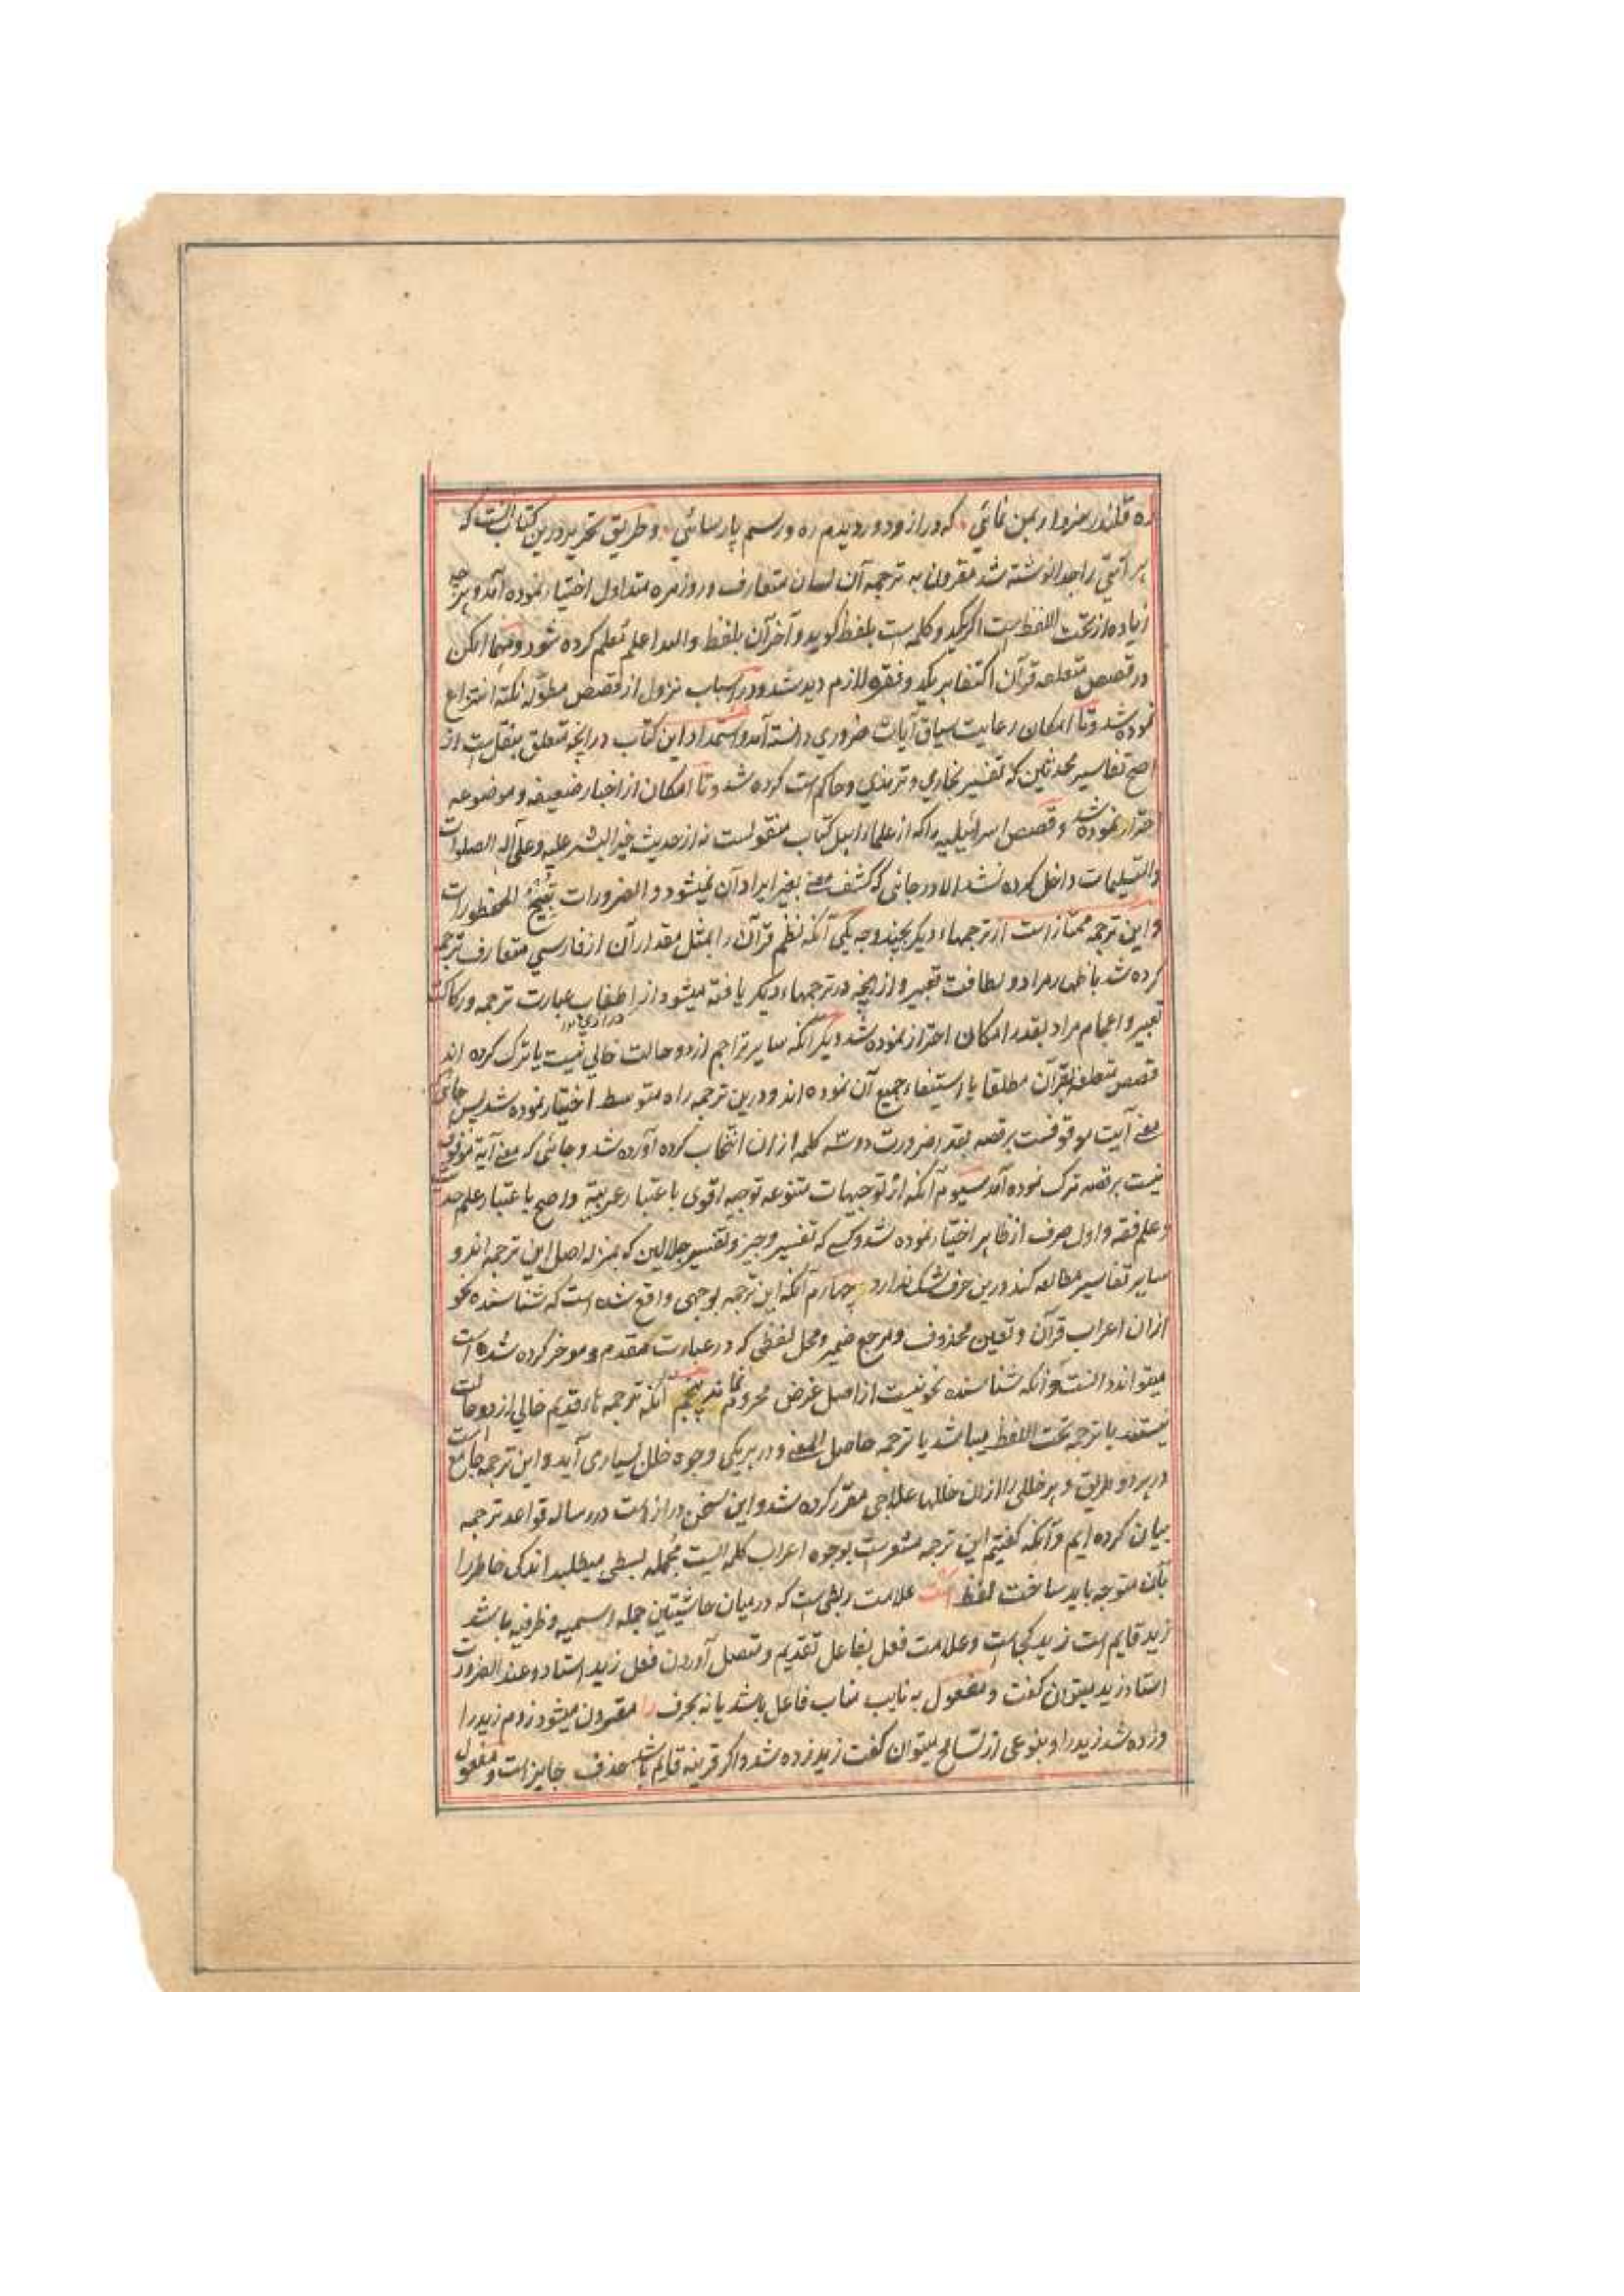 ره قلندر سزوار بمن نمائي که دراز و دور دیدم ره و رسم پارسائي و طریق تحریر درین کتاب آنست که
هر آیتی را جدا نوشته شد مقرون به ترجمه آن لسان متعارف و روزمره متداول اختیار نموده آمد و هرچه
زیاده از تحت اللفظ است اگر یکد و کلمه است بلفظ گوید و آخر آن بلفظ والله اعلم معلم کرده شود و مهما امکن
در قصص متعلقه قرآن اکتفا بر یکد و فقره لازم دیده شد و در اسباب نزول از قصص مطوله نکته انتزاع
نموده شد و تا امکان رعایت سیاق آیات ضروري دانسته آمد و استمداد این کتاب در آنچه متعلق بنقل است از
اصح تفاسیر محدثین که تفسیر بخاري و ترمذي و حاکم است کرده شد و تا امکان از اخبار ضعیفه و موضوعه
احتراز نموده شد و قصص اسرائیلیه را که از علماء اهل کتاب منقولست نه از حدیث خیر البشر علیه و علی آله الصلوات
والتسلیمات داخل کرده نشد الا در جائی که کشف معنے بغیر ایراد آن نمیشود و الضرورات تُبیحُ المحظورات
و این ترجمه ممتاز است از ترجمهاء دیگر بچند وجه یکي آنکه نظم قرآن را بمثل مقدار آن از فارسي متعارف ترجمه
کرده شد با ظهار مراد و لطافت تعبیر و از آنچه در ترجمهاء دیگر یافته میشود از اطناب عبارت ترجمه و رکاکت
تعبیر و اعجام مراد بقدر امکان احتراز نموده شد دیگر آنکه سایر تراجم از دو حالت خالي نیست یا ترک کرده اند
قصص متعلقه بقرآن مطلقا یا استیفاء جمیع آن نموده اند و درین ترجمه راه متوسط اختیار نموده شد پس جائی که
معنے آیت موقوفست بر قصه بقدر ضرورت دو سه کلمه از ان انتخاب کرده آورده شد و جائی که معنے آیة موقوف
نیست بر قصه ترک نموده آمد سیوم آنکه از توجیهات متنوعه توجیه اقوی باعتبار عربیة و اصح باعتبار علم حدیث
و علم فقه و اول صرف از ظاهر اختیار نموده شد و کسے که تفسیر وجیز و تفسیر جلالین که بمنزله اصل این ترجمه اند و
سایر تفاسیر مطالعه کند درین حرف شک ندارد چهارم آنکه این ترجمه بوجهی واقع شده است که شناسنده نحو
ازان اعراب قرآن و تعین محذوف و مرجع ضمیر و محل لفظی که در عبارت متقدم و موخر کرده شده است
میتواند دانست و آنکه شناسنده نحو نیست از اصل غرض محروم نماند پنجم آنکه ترجمه هاء قدیم خالي از دو حالت
نیستند یا ترجمه تحت اللفظ میباشد یا ترجمه حاصل المعنے و در هر یکی وجوه خلل بسیاری آید و این ترجمه جامع است
در هر دو طریق و هر خللی را ازان خللها علاجی مقرر کرده شد و این سخن دراز است در رساله قواعد ترجمه
بیان کرده ایم و آنکه گفتیم این ترجمه مشعر است بوجوه اعراب کلمه ایست مجمله بسطی میطلبد اندکی خاطر را
بآن متوجه باید ساخت لفظ است علامت ربطی است که در میان حاشیتین جمله اسمیه و ظرفیه باشد
زید قایم است زید کجا است و علامت فعل بفاعل تقدیم و متصل آوردن فعل زید استاد و عند الضرورت
استاد زید میتوان گفت و مفعول به نایب مناب فاعل باشد یا نه بحرف را مقرون میشود زدم زید را
و زده شد زید را و بنوعی از تسامح میتوان گفت زید زده شد و اگر قرینه قایم باشد حذف جایز است و مفعول